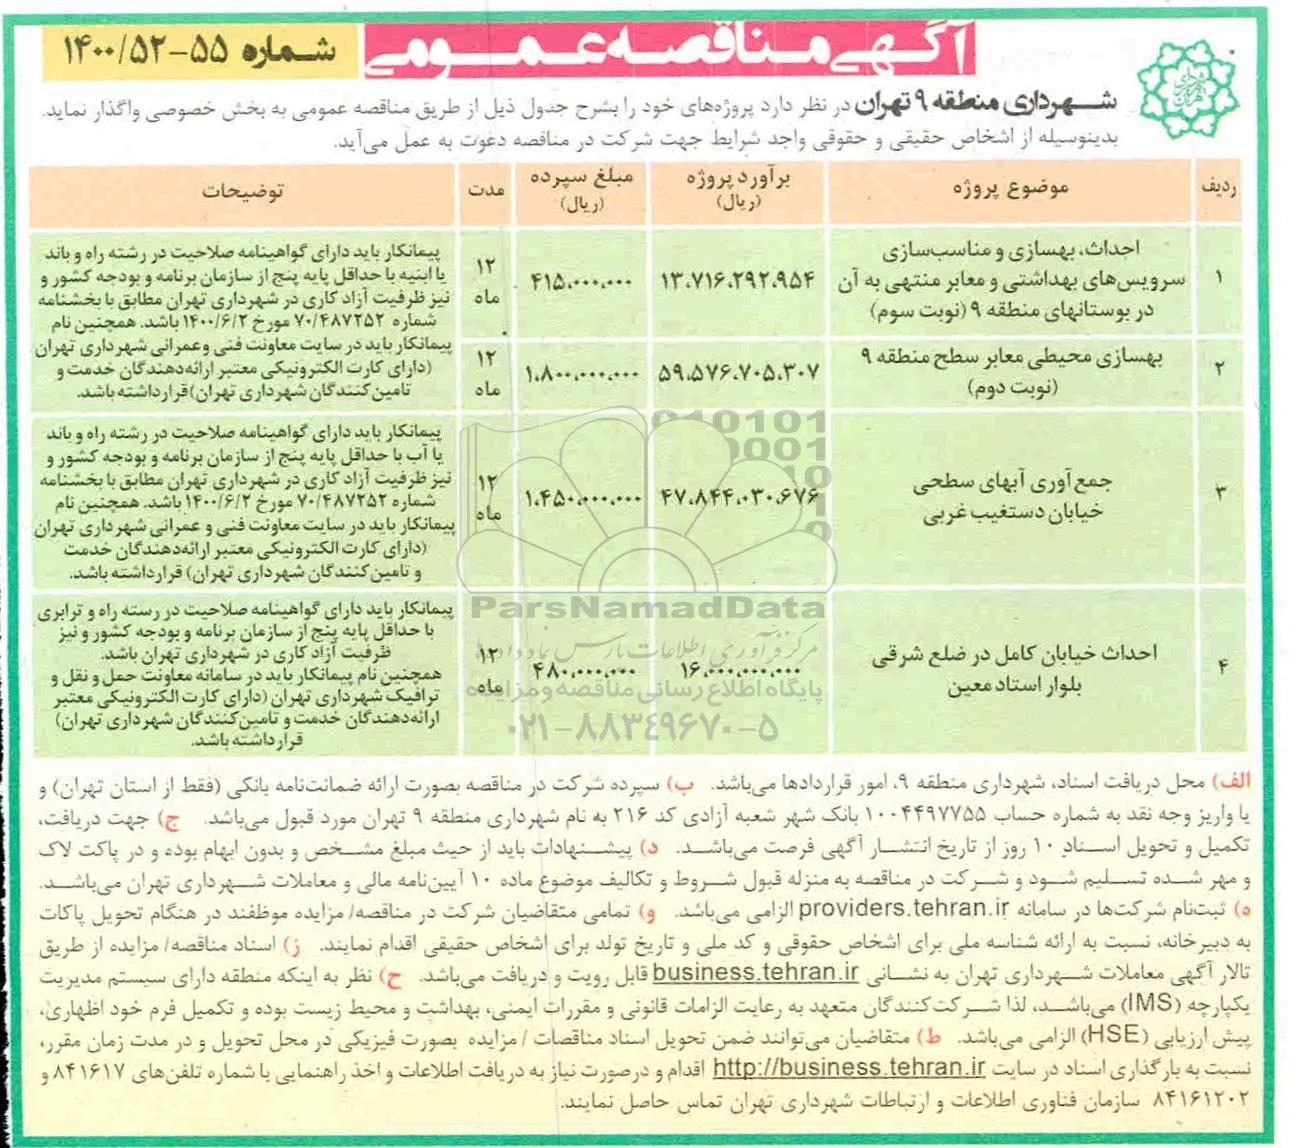 آگهی مناقصه عمومی
شماره ۵۵-۱۴۰۰/۵۲
شهرداری منطقه ۹ تهران در نظر دارد پروژه‌های خود را بشرح جدول ذیل از طریق مناقصه عمومی به بخش خصوصی واگذار نماید.
بدینوسیله از اشخاص حقیقی و حقوقی واجد شرایط جهت شرکت در مناقصه دعوت به عمل می‌آید.
ردیف
موضوع پروژه
برآورد پروژه
(ریال)
مبلغ سپرده
(ریال)
مدت
توضیحات
۱
احداث، بهسازی و مناسب‌سازی
سرویس‌های بهداشتی و معابر منتهی به آن
در بوستانهای منطقه ۹ (نوبت سوم)
۱۳،۷۱۶،۲۹۲،۹۵۴
۴۱۵،۰۰۰،۰۰۰
۱۲
ماه
پیمانکار باید دارای گواهینامه صلاحیت در رشته راه و باند
یا ابنیه با حداقل پایه پنج از سازمان برنامه و بودجه کشور و
نیز ظرفیت آزاد کاری در شهرداری تهران مطابق با بخشنامه
شماره ۷۰/۴۸۷۲۵۲ مورخ ۱۴۰۰/۶/۲ باشد. همچنین نام
پیمانکار باید در سایت معاونت فنی وعمرانی شهرداری تهران
(دارای کارت الکترونیکی معتبر ارائه‌دهندگان خدمت و
تامین‌کنندگان شهرداری تهران) قرارداشته باشد.
۲
بهسازی محیطی معابر سطح منطقه ۹
(نوبت دوم)
۵۹،۵۷۶،۷۰۵،۳۰۷
۱،۸۰۰،۰۰۰،۰۰۰
۱۲
ماه
۳
جمع آوری آبهای سطحی
خیابان دستغیب غربی
۴۷،۸۴۴،۰۳۰،۶۷۶
۱،۴۵۰،۰۰۰،۰۰۰
۱۲
ماه
پیمانکار باید دارای گواهینامه صلاحیت در رشته راه و باند
یا آب با حداقل پایه پنج از سازمان برنامه و بودجه کشور و
نیز ظرفیت آزاد کاری در شهرداری تهران مطابق با بخشنامه
شماره ۷۰/۴۸۷۲۵۲ مورخ ۱۴۰۰/۶/۲ باشد. همچنین نام
پیمانکار باید در سایت معاونت فنی و عمرانی شهرداری تهران
(دارای کارت الکترونیکی معتبر ارائه‌دهندگان خدمت
و تامین‌کنندگان شهرداری تهران) قرارداشته باشد.
۴
احداث خیابان کامل در ضلع شرقی
بلوار استاد معین
۱۶،۰۰۰،۰۰۰،۰۰۰
۴۸۰،۰۰۰،۰۰۰
۱۲
ماه
پیمانکار باید دارای گواهینامه صلاحیت در رسته راه و ترابری
با حداقل پایه پنج از سازمان برنامه و بودجه کشور و نیز
ظرفیت آزاد کاری در شهرداری تهران باشد.
همچنین نام پیمانکار باید در سامانه معاونت حمل و نقل و
ترافیک شهرداری تهران (دارای کارت الکترونیکی معتبر
ارائه‌دهندگان خدمت و تامین‌کنندگان شهرداری تهران)
قرارداشته باشد.
ParsNamadData
مرکز فرآوری اطلاعات پارس نماد داده‌ها
پایگاه اطلاع رسانی مناقصه و مزایده
۰۲۱-۸۸۳۴۹۶۷۰-۵
الف) محل دریافت اسناد، شهرداری منطقه ۹، امور قراردادها می‌باشد. ب) سپرده شرکت در مناقصه بصورت ارائه ضمانت‌نامه بانکی (فقط از استان تهران) و
یا واریز وجه نقد به شماره حساب ۱۰۰۴۴۹۷۷۵۵ بانک شهر شعبه آزادی کد ۲۱۶ به نام شهرداری منطقه ۹ تهران مورد قبول می‌باشد. ج) جهت دریافت،
تکمیل و تحویل اسناد ۱۰ روز از تاریخ انتشار آگهی فرصت می‌باشد. د) پیشنهادات باید از حیث مبلغ مشخص و بدون ابهام بوده و در پاکت لاک
و مهر شده تسلیم شود و شرکت در مناقصه به منزله قبول شروط و تکالیف موضوع ماده ۱۰ آیین‌نامه مالی و معاملات شهرداری تهران می‌باشد.
ه) ثبت‌نام شرکت‌ها در سامانه providers.tehran.ir الزامی می‌باشد. و) تمامی متقاضیان شرکت در مناقصه/ مزایده موظفند در هنگام تحویل پاکات
به دبیرخانه، نسبت به ارائه شناسه ملی برای اشخاص حقوقی و کد ملی و تاریخ تولد برای اشخاص حقیقی اقدام نمایند. ز) اسناد مناقصه/ مزایده از طریق
تالار آگهی معاملات شهرداری تهران به نشانی business.tehran.ir قابل رویت و دریافت می‌باشد. ح) نظر به اینکه منطقه دارای سیستم مدیریت
یکپارچه (IMS) می‌باشد، لذا شرکت‌کنندگان متعهد به رعایت الزامات قانونی و مقررات ایمنی، بهداشت و محیط زیست بوده و تکمیل فرم خود اظهاری،
پیش ارزیابی (HSE) الزامی می‌باشد. ط) متقاضیان می‌توانند ضمن تحویل اسناد مناقصات / مزایده بصورت فیزیکی در محل تحویل و در مدت زمان مقرر،
نسبت به بارگذاری اسناد در سایت http://business.tehran.ir اقدام و درصورت نیاز به دریافت اطلاعات و اخذ راهنمایی با شماره تلفن‌های ۸۴۱۶۱۷ و
۸۴۱۶۱۲۰۲ سازمان فناوری اطلاعات و ارتباطات شهرداری تهران تماس حاصل نمایند.